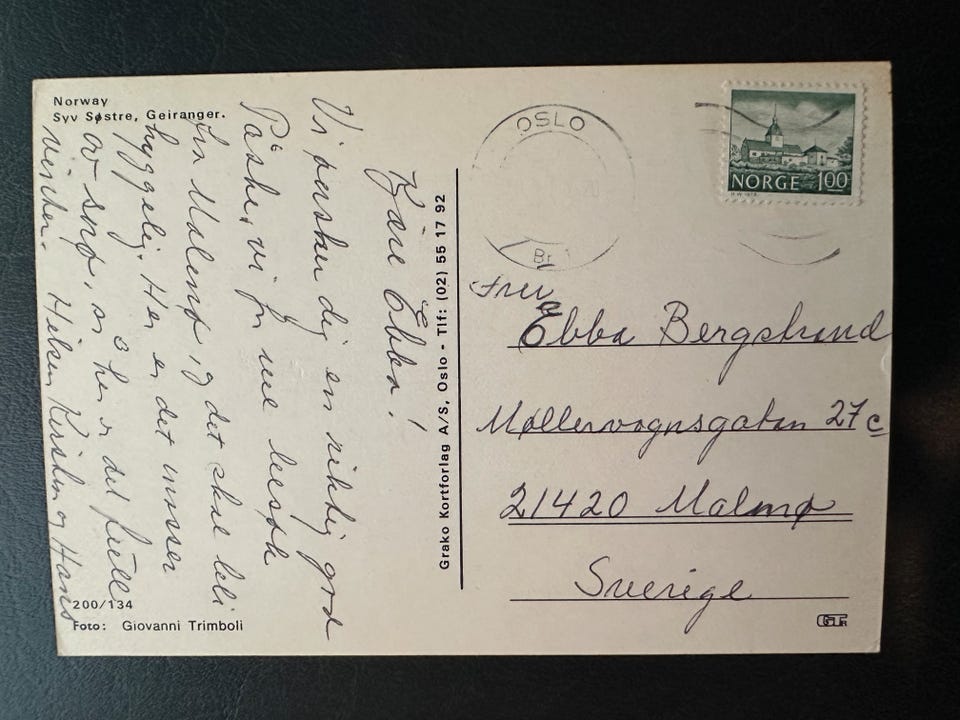 Norway
Syv Søstre, Geiranger.
Kjære Ebba!
Vi ønsker dig en riktig god
Påske, vi får nu besøk
fra Malmø, og det skal bli
hyggelig. Her er det masser
av snø, så her er det
Hilsen Kirsten og Hans
200/134
Foto: Giovanni Trimboli
Grako Kortforlag A/S, Oslo - Tlf: (02) 55 17 92
OSLO
Br 1
NORGE 100
Fru
Ebba Bergstrand
Møllevognsgatan 27c
21420 Malmø
Sverige